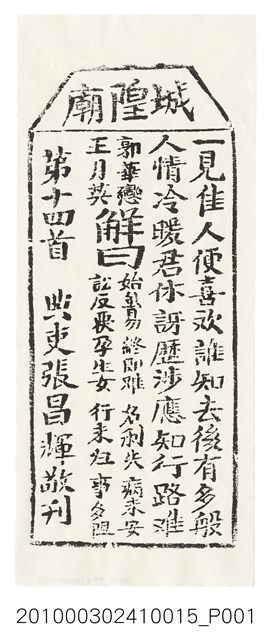 城隍廟
一見佳人便喜欢誰知去後有多般
人情冷暖君休訝歷涉應知行路难
郭華戀
王月英
解曰
始易終即难 名利失 病未安
訟反畏孕生女 行未归 事多阻
第十四首 典吏張昌輝敬刊
201000302410015_P001